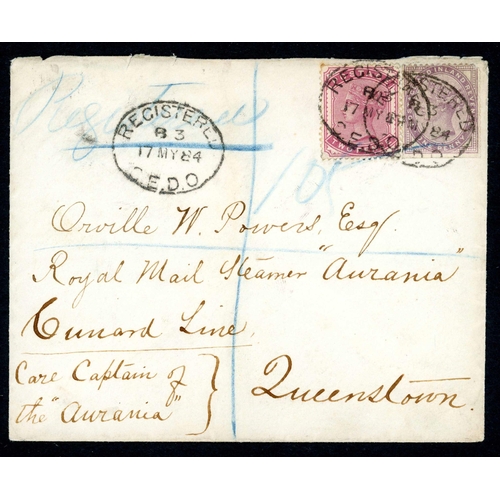 Registered
REGISTERED
B 3
17 MY 84
C.E.D.O
REGISTERED
17 MY 84
C.E.D.O
Orville W. Powers, Esq.
Royal Mail Steamer "Aurania"
Cunard Line,
Care Captain of
the "Aurania"
Queenstown.